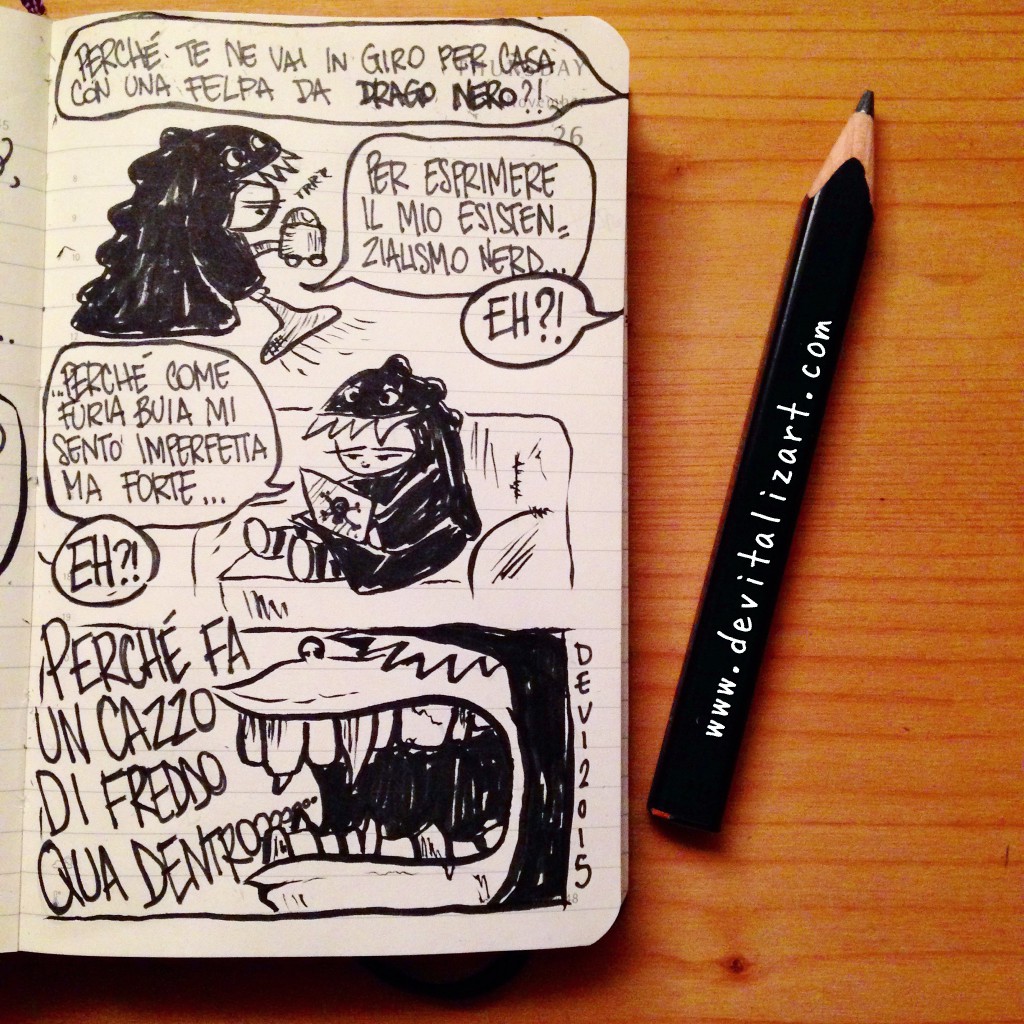 PERCHÉ TE NE VAI IN GIRO PER CASA
CON UNA FELPA DA DRAGO NERO?!
THURSDAY
26
PER ESPRIMERE
IL MIO ESISTEN=
ZIALISMO NERD...
EH?!
...PERCHÉ COME
FURIA BUIA MI
SENTO IMPERFETTA
MA FORTE...
EH?!
PERCHÉ FA
UN CAZZO
DI FREDDO
QUA DENTROOOOOO
DEVI2015
www.devitalizart.com